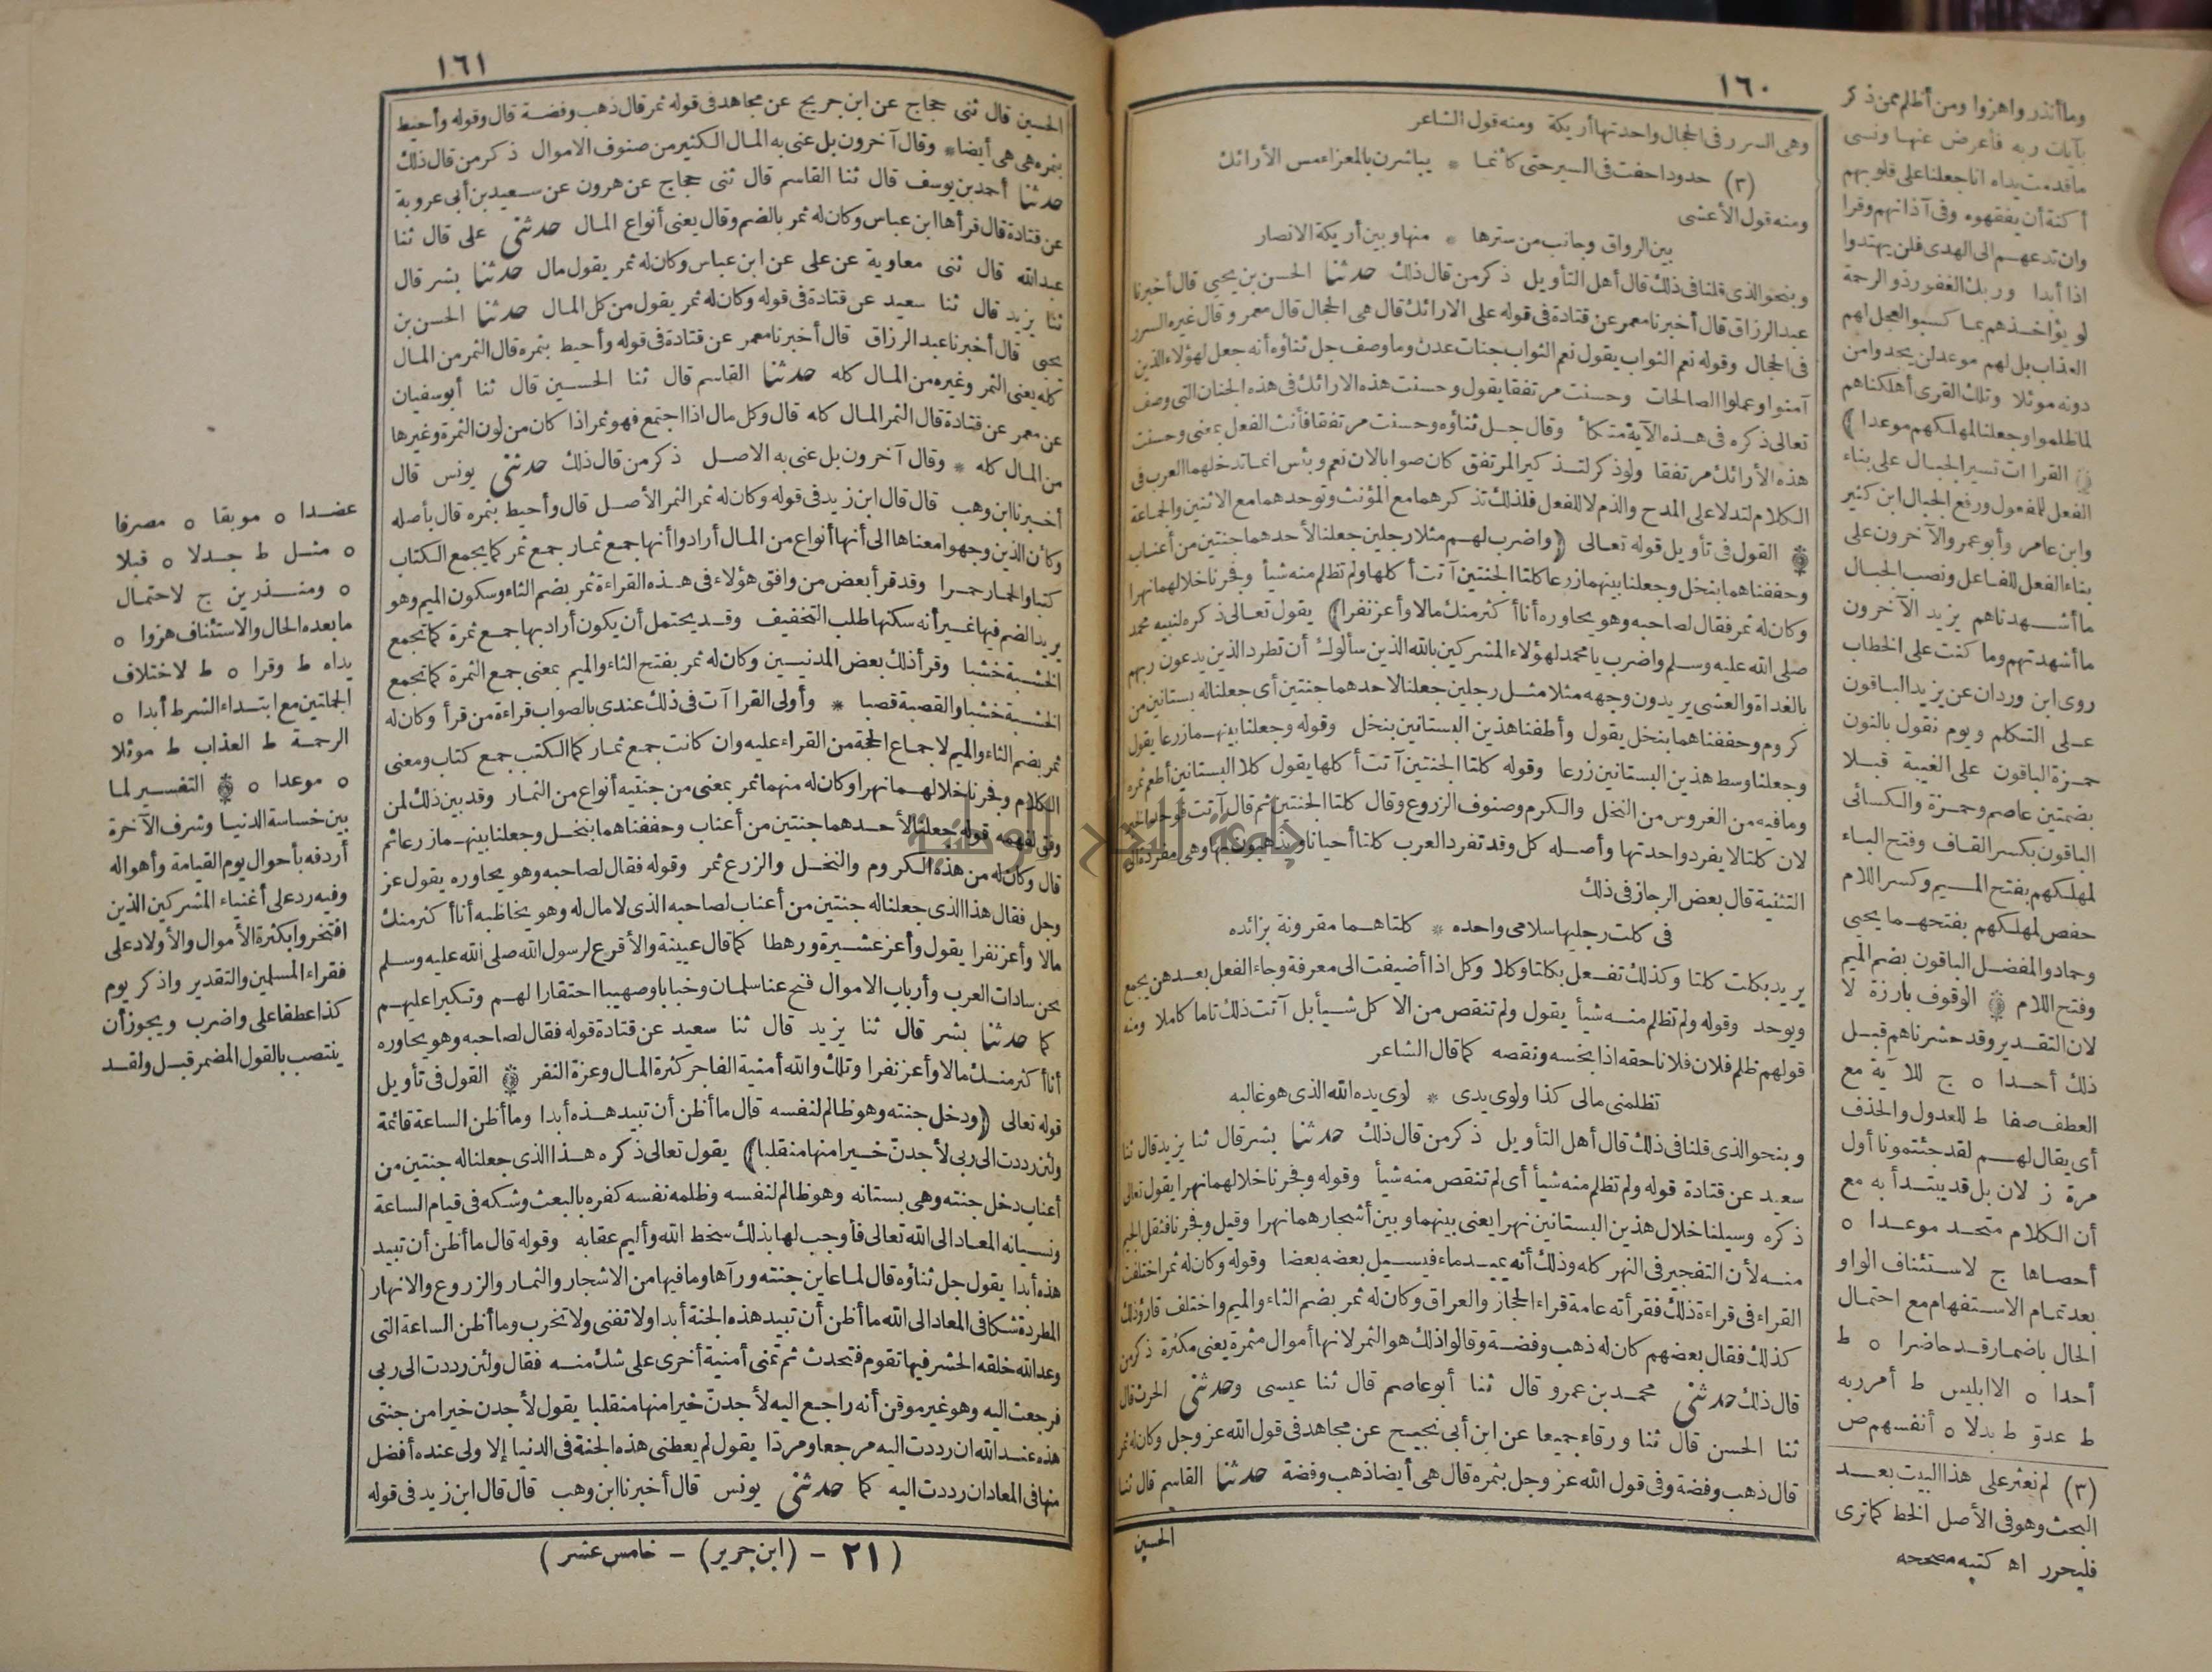 ١٦٠
وهى السرر فى الحجال واحدتها أريكة ومنه قول الشاعر
(٣) خدودا جفت فى السير حتى كأنما * يباشرن بالمعزاء مس الأرائك
ومنه قول الأعشى
بين الرواق وجانب من سترها * منها وبين أريكة الانصار
وبنحو الذى قلنا فى ذلك قال أهل التأويل ذكر من قال ذلك حدثنا الحسن بن يحيى قال أخبرنا
عبد الرزاق قال أخبرنا معمر عن قتادة فى قوله على الارائك قال هى الحجال قال معمر وقال غيره السرر
فى الحجال وقوله نعم الثواب يقول نعم الثواب جنات عدن وما وصف جل ثناؤه أنه جعل لهؤلاء الذين
آمنوا وعملوا الصالحات وحسنت مرتفقا يقول وحسنت هذه الارائك فى هذه الجنان التى وصف
تعالى ذكره فى هذه الآية متكأ وقال جل ثناؤه وحسنت مرتفقا فأنث الفعل بمعنى وحسنت
هذه الأرائك مرتفقا ولو ذكر لتذكير المرتفق كان صوابا لان نعم وبئس انما تدخلهما العرب فى
الكلام لتدلا على المدح والذم لا للفعل فلذلك تذكرهما مع المؤنث وتوحدهما مع الاثنين والجماعة
القول فى تأويل قوله تعالى (واضرب لهم مثلا رجلين جعلنا لأحدهما جنتين من أعناب
وحففناهما بنخل وجعلنا بينهما زرعا كلتا الجنتين آتت أكلها ولم تظلم منه شيأ وفجرنا خلالهما نهرا
وكان له ثمر فقال لصاحبه وهو يحاوره أنا أكثر منك مالا وأعز نفرا) يقول تعالى ذكره لنبيه محمد
صلى الله عليه وسلم واضرب يا محمد لهؤلاء المشركين بالله الذين سألوك أن تطرد الذين يدعون ربهم
بالغداة والعشى يريدون وجهه مثلا مثل رجلين جعلنا لاحدهما جنتين أى جعلنا له بستانين من
كروم وحففناهما بنخل يقول وأطفنا هذين البستانين بنخل وقوله وجعلنا بينهما زرعا يقول
وجعلنا وسط هذين البستانين زرعا وقوله كلتا الجنتين آتت أكلها يقول كلا البستانين أطعم ثمره
وما فيه من الغروس من النخل والكرم وصنوف الزروع وقال كلتا الجنتين ثم قال آتت فوحد الخبر
لان كلتا لا يفرد واحدتها وأصله كل وقد تفرد العرب كلتا أحيانا ويذهبون بها وهى مفردة الى
التثنية قال بعض الرجاز فى ذلك
فى كلت رجليها سلامى واحده * كلتاهما مقرونة بزائده
يريد بكلت كلتا وكذلك تفعل بكلتا وكلا وكل اذا أضيفت الى معرفة وجاء الفعل بعدهن يجمع
ويوحد وقوله ولم تظلم منه شيأ يقول ولم تنقص من الاكل شيأ بل آتت ذلك تاما كاملا ومنه
قولهم ظلم فلان فلانا حقه اذا بخسه ونقصه كما قال الشاعر
تظلمنى مالى كذا ولوى يدى * لوى يده الله الذى هو غالبه
وبنحو الذى قلنا فى ذلك قال أهل التأويل ذكر من قال ذلك حدثنا بشر قال ثنا يزيد قال ثنا
سعيد عن قتادة قوله ولم تظلم منه شيأ أى لم تنقص منه شيأ وقوله وفجرنا خلالهما نهرا يقول تعالى
ذكره وسيلنا خلال هذين البستانين نهرا يعنى بينهما وبين أشجارهما نهرا وقيل وفجرنا فثقل الجيم
منه لأن التفجير فى النهر كله وذلك أنه يميد ماء فيسيل بعضه بعضا وقوله وكان له ثمر اختلفت
القراء فى قراءة ذلك فقرأته عامة قراء الحجاز والعراق وكان له ثمر بضم الثاء والميم واختلف قارؤ ذلك
كذلك فقال بعضهم كان له ذهب وفضة وقالوا ذلك هو الثمر لانها أموال مثمرة يعنى مكثرة ذكر من
قال ذلك حدثنى محمد بن عمرو قال ثنا أبو عاصم قال ثنا عيسى وحدثنى الحرث قال
ثنا الحسن قال ثنا ورقاء جميعا عن ابن أبى نجيح عن مجاهد فى قول الله عز وجل وكان له ثمر
قال ذهب وفضة وفى قول الله عز وجل بثمره قال هى أيضا ذهب وفضة حدثنا القاسم قال ثنا
الحسين
وما أنذروا هزوا ومن أظلم ممن ذكر
بآيات ربه فأعرض عنها ونسى
ما قدمت يداه انا جعلنا على قلوبهم
أكنة أن يفقهوه وفى آذانهم وقرا
وان تدعهم الى الهدى فلن يهتدوا
اذا أبدا وربك الغفور ذو الرحمة
لو يؤاخذهم بما كسبوا لعجل لهم
العذاب بل لهم موعد لن يجدوا من
دونه موئلا وتلك القرى أهلكناهم
لما ظلموا وجعلنا لمهلكهم موعدا)
القراآت تسير الجبال على بناء
الفعل للمفعول ورفع الجبال ابن كثير
وابن عامر وأبو عمرو الآخرون على
بناء الفعل للفاعل ونصب الجبال
ما أشهدناهم يزيد الآخرون
ما أشهدتهم وما كنت على الخطاب
روى ابن وردان عن يزيد الباقون
على التكلم ويوم نقول بالنون
حمزة الباقون على الغيبة قبلا
بضمتين عاصم وحمزة والكسائى
الباقون بكسر القاف وفتح الباء
لمهلكهم بفتح الميم وكسر اللام
حفص لمهلكهم بفتحهما يحيى
وحماد والمفضل الباقون بضم الميم
وفتح اللام الوقوف بارزة لا
لان التقدير وقد حشرناهم قبل
ذلك أحدا ه ج للآية مع
العطف صفا ط للعدول والحذف
أى يقال لهم لقد جئتمونا أول
مرة ز لان بل قد يبتدأ به مع
أن الكلام متحد موعدا ه
أحصاها ج لاستئناف الواو
بعد تمام الاستفهام مع احتمال
الحال باضمار قد حاضرا ه ط
أحدا ه الا ابليس ط أمر ربه
ط عدو ط بدلا ه أنفسهم ص
(٣) لم نعثر على هذا البيت بعد
البحث وهو فى الأصل الخط كما ترى
فليحرر اه كتبه مصححه
١٦١
الحسين قال ثنى حجاج عن ابن جريج عن مجاهد فى قوله ثمر قال ذهب وفضة قال وقوله وأحيط
بثمره هى هى أيضا * وقال آخرون بل عنى به المال الكثير من صنوف الاموال ذكر من قال ذلك
حدثنا أحمد بن يوسف قال ثنا القاسم قال ثنى حجاج عن هرون عن سعيد بن أبى عروبة
عن قتادة قال قرأها ابن عباس وكان له ثمر بالضم وقال يعنى أنواع المال حدثنى على قال ثنا
عبد الله قال ثنى معاوية عن على عن ابن عباس وكان له ثمر يقول مال حدثنا بشر قال
ثنا يزيد قال ثنا سعيد عن قتادة فى قوله وكان له ثمر يقول من كل المال حدثنا الحسن بن
يحيى قال أخبرنا عبد الرزاق قال أخبرنا معمر عن قتادة فى قوله وأحيط بثمره قال الثمر من المال
كله يعنى الثمر وغيره من المال كله حدثنا القاسم قال ثنا الحسين قال ثنا أبو سفيان
عن معمر عن قتادة قال الثمر المال كله قال وكل مال اذا اجتمع فهو ثمر اذا كان من لون الثمرة وغيرها
من المال كله * وقال آخرون بل عنى به الاصل ذكر من قال ذلك حدثنى يونس قال
أخبرنا ابن وهب قال قال ابن زيد فى قوله وكان له ثمر الثمر الأصل قال وأحيط بثمره قال بأصله
وكأن الذين وجهوا معناها الى أنها أنواع من المال أرادوا أنها جمع ثمار جمع ثمر كما يجمع الكتاب
كتبا والحمار حمرا وقد قرأ بعض من وافق هؤلاء فى هذه القراءة ثمر بضم الثاء وسكون الميم وهو
يريد الضم فيها غير أنه سكنها طلب التخفيف وقد يحتمل أن يكون أراد بها جمع ثمرة كما تجمع
الخشبة خشبا وقرأ ذلك بعض المدنيين وكان له ثمر بفتح الثاء والميم بمعنى جمع الثمرة كما تجمع
الخشبة خشبا والقصبة قصبا * وأولى القراآت فى ذلك عندى بالصواب قراءة من قرأ وكان له
ثمر بضم الثاء والميم لاجماع الحجة من القراء عليه وان كانت جمع ثمار كما الكتب جمع كتاب ومعنى
الكلام وفجرنا خلالهما نهرا وكان له منهما ثمر بمعنى من جنتيه أنواع من الثمار وقد بين ذلك لمن
وفق لفهمه قوله جعلنا لأحدهما جنتين من أعناب وحففناهما بنخل وجعلنا بينهما زرعا ثم
قال وكان له من هذه الكروم والنخل والزرع ثمر وقوله فقال لصاحبه وهو يحاوره يقول عز
وجل فقال هذا الذى جعلنا له جنتين من أعناب لصاحبه الذى لا مال له وهو يخاطبه أنا أكثر منك
مالا وأعز نفرا يقول وأعز عشيرة ورهطا كما قال عيينة والأقرع لرسول الله صلى الله عليه وسلم
نحن سادات العرب وأرباب الاموال فنح عنا سلمان وخبابا وصهيبا احتقارا لهم وتكبرا عليهم
كما حدثنا بشر قال ثنا يزيد قال ثنا سعيد عن قتادة قوله فقال لصاحبه وهو يحاوره
أنا أكثر منك مالا وأعز نفرا وتلك والله أمنية الفاجر كثرة المال وعزة النفر القول فى تأويل
قوله تعالى (ودخل جنته وهو ظالم لنفسه قال ما أظن أن تبيد هذه أبدا وما أظن الساعة قائمة
ولئن رددت الى ربى لأجدن خيرا منها منقلبا) يقول تعالى ذكره هذا الذى جعلنا له جنتين من
أعناب دخل جنته وهى بستانه وهو ظالم لنفسه وظلمه نفسه كفره بالبعث وشكه فى قيام الساعة
ونسيانه المعاد الى الله تعالى فأوجب لها بذلك سخط الله وأليم عقابه وقوله قال ما أظن أن تبيد
هذه أبدا يقول جل ثناؤه قال لما عاين جنته ورآها وما فيها من الاشجار والثمار والزروع والانهار
المطردة شكا فى المعاد الى الله ما أظن أن تبيد هذه الجنة أبدا ولا تفنى ولا تخرب وما أظن الساعة التى
وعد الله خلقه الحشر فيها تقوم فتحدث ثم تمنى أمنية أخرى على شك منه فقال ولئن رددت الى ربى
فرجعت اليه وهو غير موقن أنه راجع اليه لأجدن خيرا منها منقلبا يقول لأجدن خيرا من جنتى
هذه عند الله ان رددت اليه مرجعا ومردا يقول لم يعطنى هذه الجنة فى الدنيا إلا ولى عنده أفضل
منها فى المعاد ان رددت اليه كما حدثنى يونس قال أخبرنا ابن وهب قال قال ابن زيد فى قوله
عضدا ه موبقا ه مصرفا
ه مثل ط جدلا ه قبلا
ه ومنذرين ج لاحتمال
ما بعده الحال والاستئناف هزوا ه
يداه ط وقرا ه ط لاختلاف
الجملتين مع ابتداء الشرط أبدا ه
الرحمة ط العذاب ط موئلا
ه موعدا ه التفسير لما
بين خساسة الدنيا وشرف الآخرة
أردفه بأحوال يوم القيامة وأهواله
وفيه رد على أغنياء المشركين الذين
افتخروا بكثرة الأموال والأولاد على
فقراء المسلمين والتقدير واذكر يوم
كذا عطفا على واضرب ويجوز أن
ينتصب بالقول المضمر قبل ولقد
(٢١ - (ابن جرير) - خامس عشر)
جامعة النجاح الوطنية